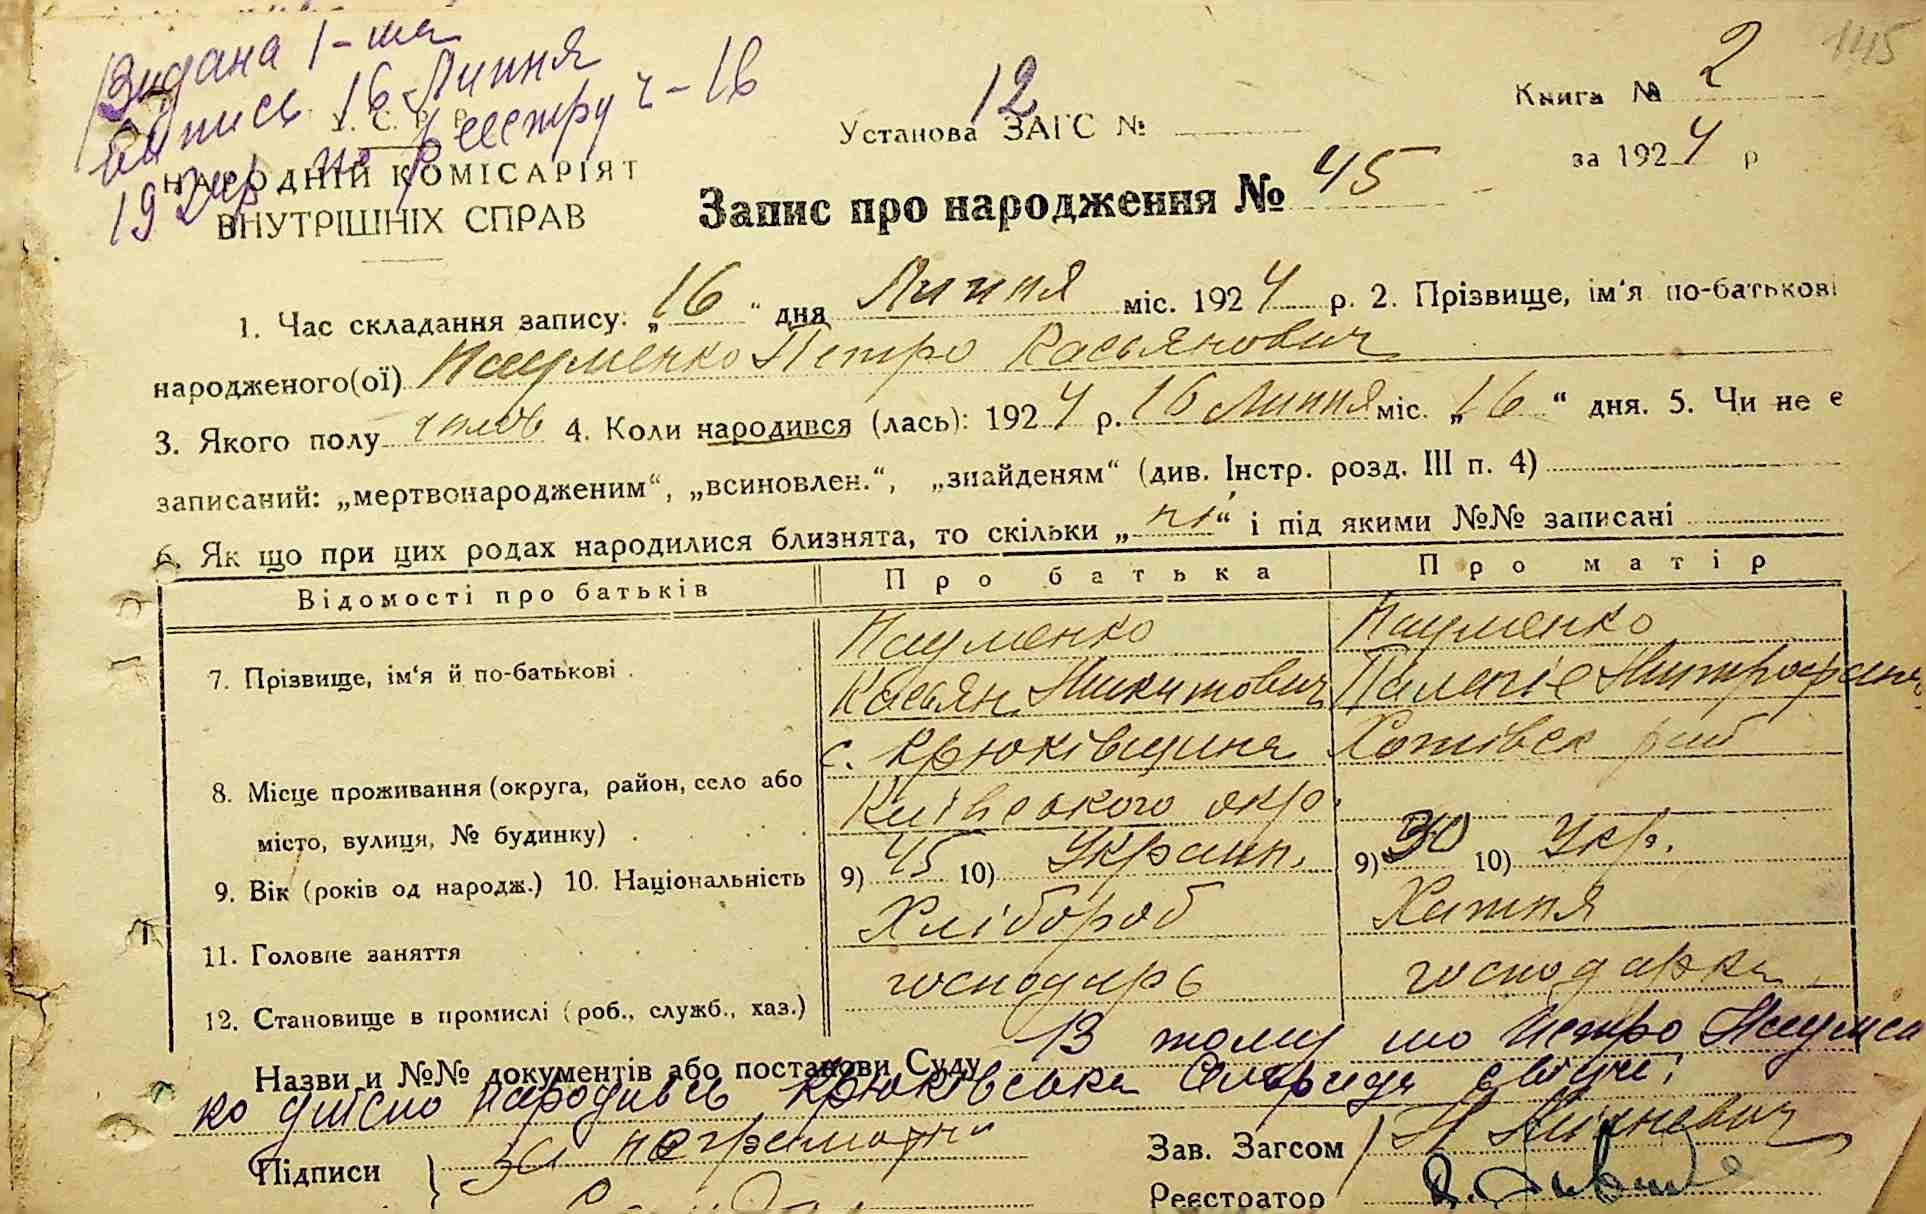 145
Видана 1-ша
випись 16 Липня
У. С. Р. Р.
по реєстру ч-16
НАРОДНІЙ КОМІСАРІЯТ
ВНУТРІШНІХ СПРАВ
Установа ЗАГС № 12
Книга № 2
за 1924 р
Запис про народження № 45
1. Час складання запису: „16“ дня Липня міс. 1924 р. 2. Прізвище, ім'я по-батькові
народженого(ої) Науменко Петро Касьянович
3. Якого полу чолов 4. Коли народився (лась): 1924 р. 16 Липня міс. „16“ дня. 5. Чи не є
записаний: „мертвонародженим“, „всиновлен.“, „знайденям“ (див. Інстр. розд. III п. 4)
6. Як що при цих родах народилися близнята, то скільки „ні“ і під якими №№ записані
Відомості про батьків Про батька Про матір
7. Прізвище, ім'я й по-батькові
Науменко Науменко
Касьян Микитович Палагія Митрофанів
8. Місце проживання (округа, район, село або
місто, вулиця, № будинку)
с. Крюківщина Хотівск рай
Київського окр.
9. Вік (років од народж.) 10. Національність 9) 45 10) Украин. 9) 30 10) Укр.
11. Головне заняття Хлібороб Хатня
12. Становище в промислі (роб., служб., хаз.) господарь господарка
Назви и №№ документів або постанови Суду В тому що Петро Наумен
ко дійсно народивсь Крюківська Сільрада свідчі
Підписи За неграмотн
Зав. Загсом
Реєстратор